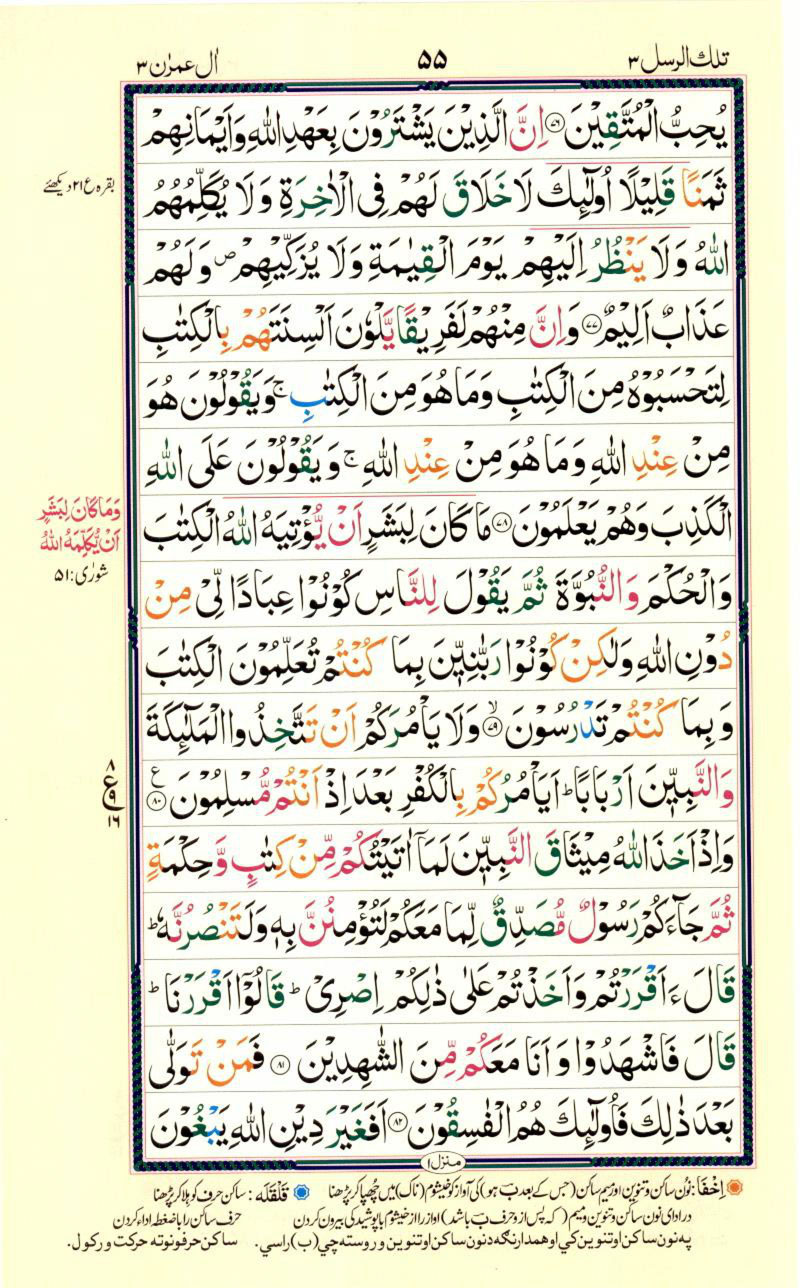 تلك الرسل ٣
٥٥
اٰل عمرٰن ٣
يُحِبُّ الْمُتَّقِيْنَ ﴿٧٦﴾ اِنَّ الَّذِيْنَ يَشْتَرُوْنَ بِعَهْدِ اللّٰهِ وَاَيْمَانِهِمْ
ثَمَنًا قَلِيْلًا اُولٰٓئِكَ لَا خَلَاقَ لَهُمْ فِى الْاٰخِرَةِ وَلَا يُكَلِّمُهُمُ
اللّٰهُ وَلَا يَنْظُرُ اِلَيْهِمْ يَوْمَ الْقِيٰمَةِ وَلَا يُزَكِّيْهِمْ ۪ وَلَهُمْ
عَذَابٌ اَلِيْمٌ ﴿٧٧﴾ وَاِنَّ مِنْهُمْ لَفَرِيْقًا يَّلْوٗنَ اَلْسِنَتَهُمْ بِالْكِتٰبِ
لِتَحْسَبُوْهُ مِنَ الْكِتٰبِ وَمَا هُوَ مِنَ الْكِتٰبِ ۚ وَيَقُوْلُوْنَ هُوَ
مِنْ عِنْدِ اللّٰهِ وَمَا هُوَ مِنْ عِنْدِ اللّٰهِ ۚ وَيَقُوْلُوْنَ عَلَى اللّٰهِ
الْكَذِبَ وَهُمْ يَعْلَمُوْنَ ﴿٧٨﴾ مَا كَانَ لِبَشَرٍ اَنْ يُّؤْتِيَهُ اللّٰهُ الْكِتٰبَ
وَالْحُكْمَ وَالنُّبُوَّةَ ثُمَّ يَقُوْلَ لِلنَّاسِ كُوْنُوْا عِبَادًا لِّىْ مِنْ
دُوْنِ اللّٰهِ وَلٰكِنْ كُوْنُوْا رَبّٰنِيّٖنَ بِمَا كُنْتُمْ تُعَلِّمُوْنَ الْكِتٰبَ
وَبِمَا كُنْتُمْ تَدْرُسُوْنَ ﴿٧٩﴾ ۙ وَلَا يَاْمُرَكُمْ اَنْ تَتَّخِذُوا الْمَلٰٓئِكَةَ
وَالنَّبِيّٖنَ اَرْبَابًا ؕ اَيَاْمُرُكُمْ بِالْكُفْرِ بَعْدَ اِذْ اَنْتُمْ مُّسْلِمُوْنَ ﴿٨٠﴾ ع
وَاِذْ اَخَذَ اللّٰهُ مِيْثَاقَ النَّبِيّٖنَ لَمَاۤ اٰتَيْتُكُمْ مِّنْ كِتٰبٍ وَّحِكْمَةٍ
ثُمَّ جَآءَكُمْ رَسُوْلٌ مُّصَدِّقٌ لِّمَا مَعَكُمْ لَتُؤْمِنُنَّ بِهٖ وَلَتَنْصُرُنَّهٗ ؕ
قَالَ ءَاَقْرَرْتُمْ وَاَخَذْتُمْ عَلٰى ذٰلِكُمْ اِصْرِىْ ؕ قَالُوْۤا اَقْرَرْنَا ؕ
قَالَ فَاشْهَدُوْا وَاَنَا مَعَكُمْ مِّنَ الشّٰهِدِيْنَ ﴿٨١﴾ فَمَنْ تَوَلّٰى
بَعْدَ ذٰلِكَ فَاُولٰٓئِكَ هُمُ الْفٰسِقُوْنَ ﴿٨٢﴾ اَفَغَيْرَ دِيْنِ اللّٰهِ يَبْغُوْنَ
بقره ع ٢١ دیکھئے
وَمَا كَانَ لِبَشَرٍ
اَنْ يُّكَلِّمَهُ اللّٰهُ
شورٰى: ٥١
٨
ع
٩
١٦
منزل ١
اِخْفَا: نون ساکن و تنوین اور میم ساکن (جس کے بعد ب ہو) کی آواز کو خیشوم (ناک) میں چھپا کر پڑھنا قَلْقَلَه: ساکن حرف کو ہلا کر پڑھنا
در ادای نون ساکن و تنوین و میم (که پس از و حرف ب باشد) آواز را از خیشوم با پوشیدگی بیرون کردن حرف ساکن را با ضغطه اداء کردن
په نون ساکن او تنوین کی او همدارنگه د نون ساکن او تنوین و روسته چی (ب) راسی. ساکن حرفونو ته حرکت ورکول.